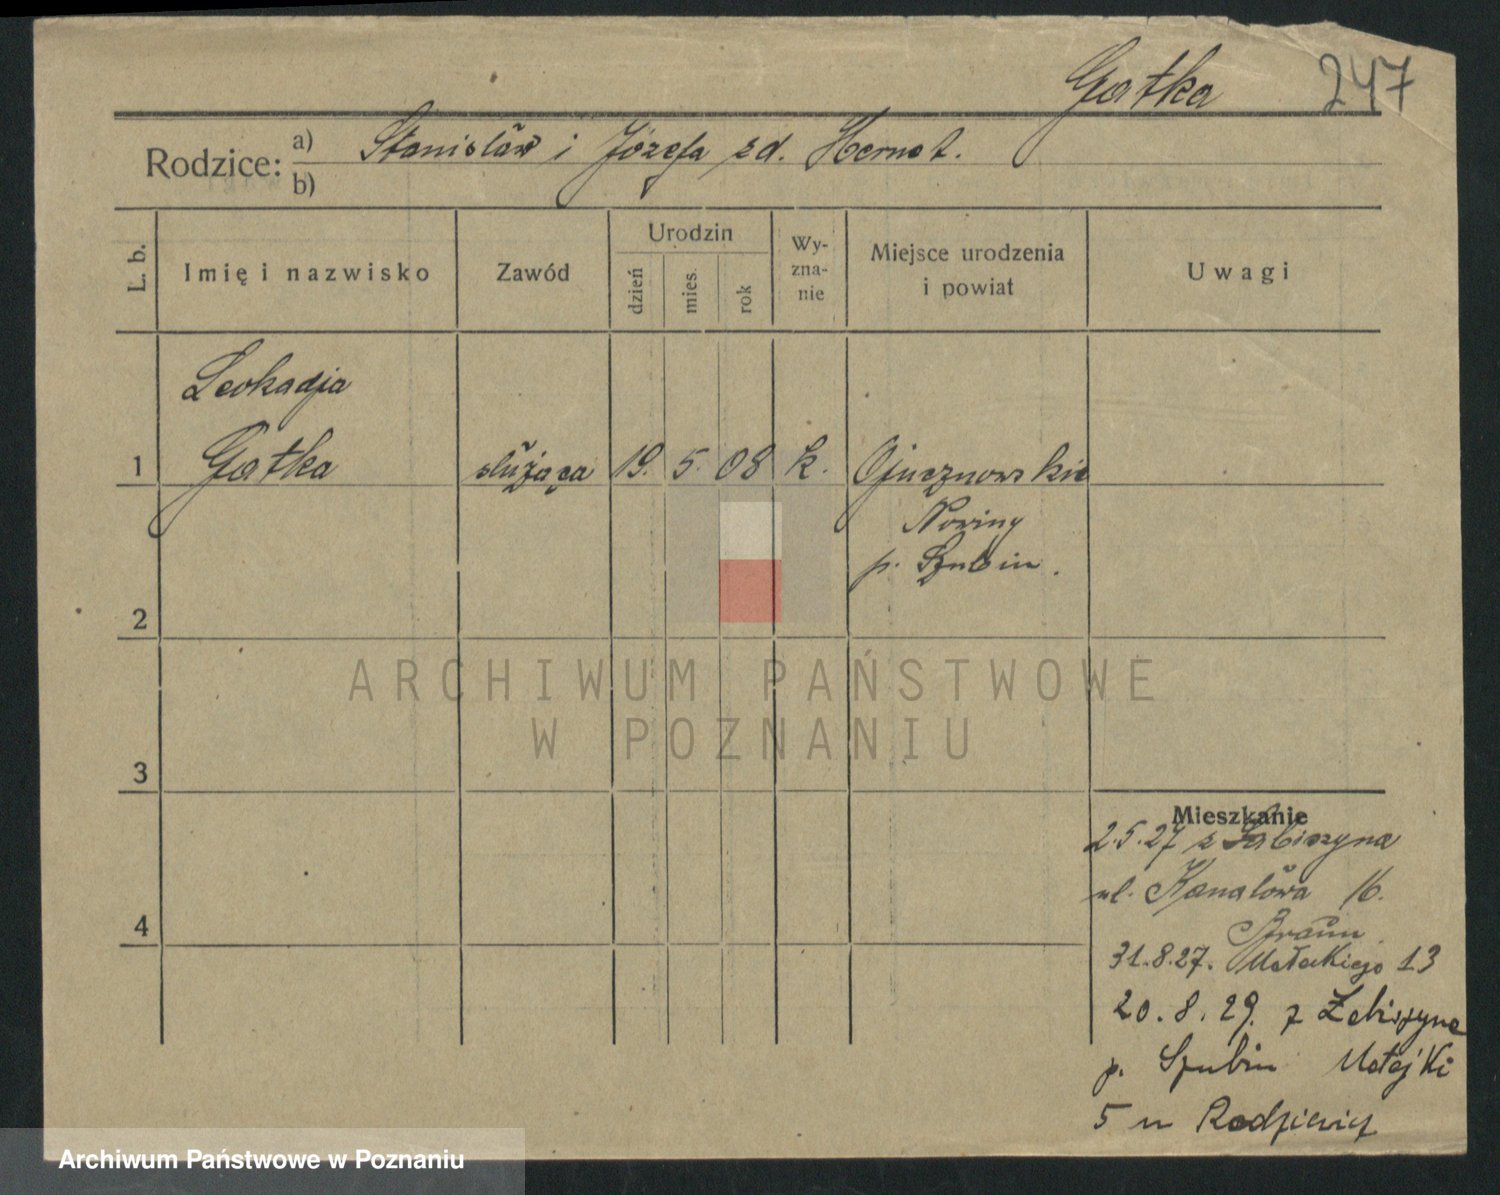 Gatka 247
Rodzice: a) Stanisław i Józefa zd. Hernet.
b)
L. b.
Imię i nazwisko
Zawód
Urodzin
dzień
mies.
rok
Wy-
zna-
nie
Miejsce urodzenia
i powiat
Uwagi
Leokadja
1 Gatka służąca 19. 5. 08 k.
Nowiny
p. Szubin.
2
ARCHIWUM PAŃSTWOWE
W POZNANIU
3
Mieszkanie
2.5.27 z Łabiszyna
ul. Kanałowa 16.
31.8.27. 13
20.8.29. z Łabiszyna
p. Szubin Matejki
5 u Rodziewicz
4
Archiwum Państwowe w Poznaniu